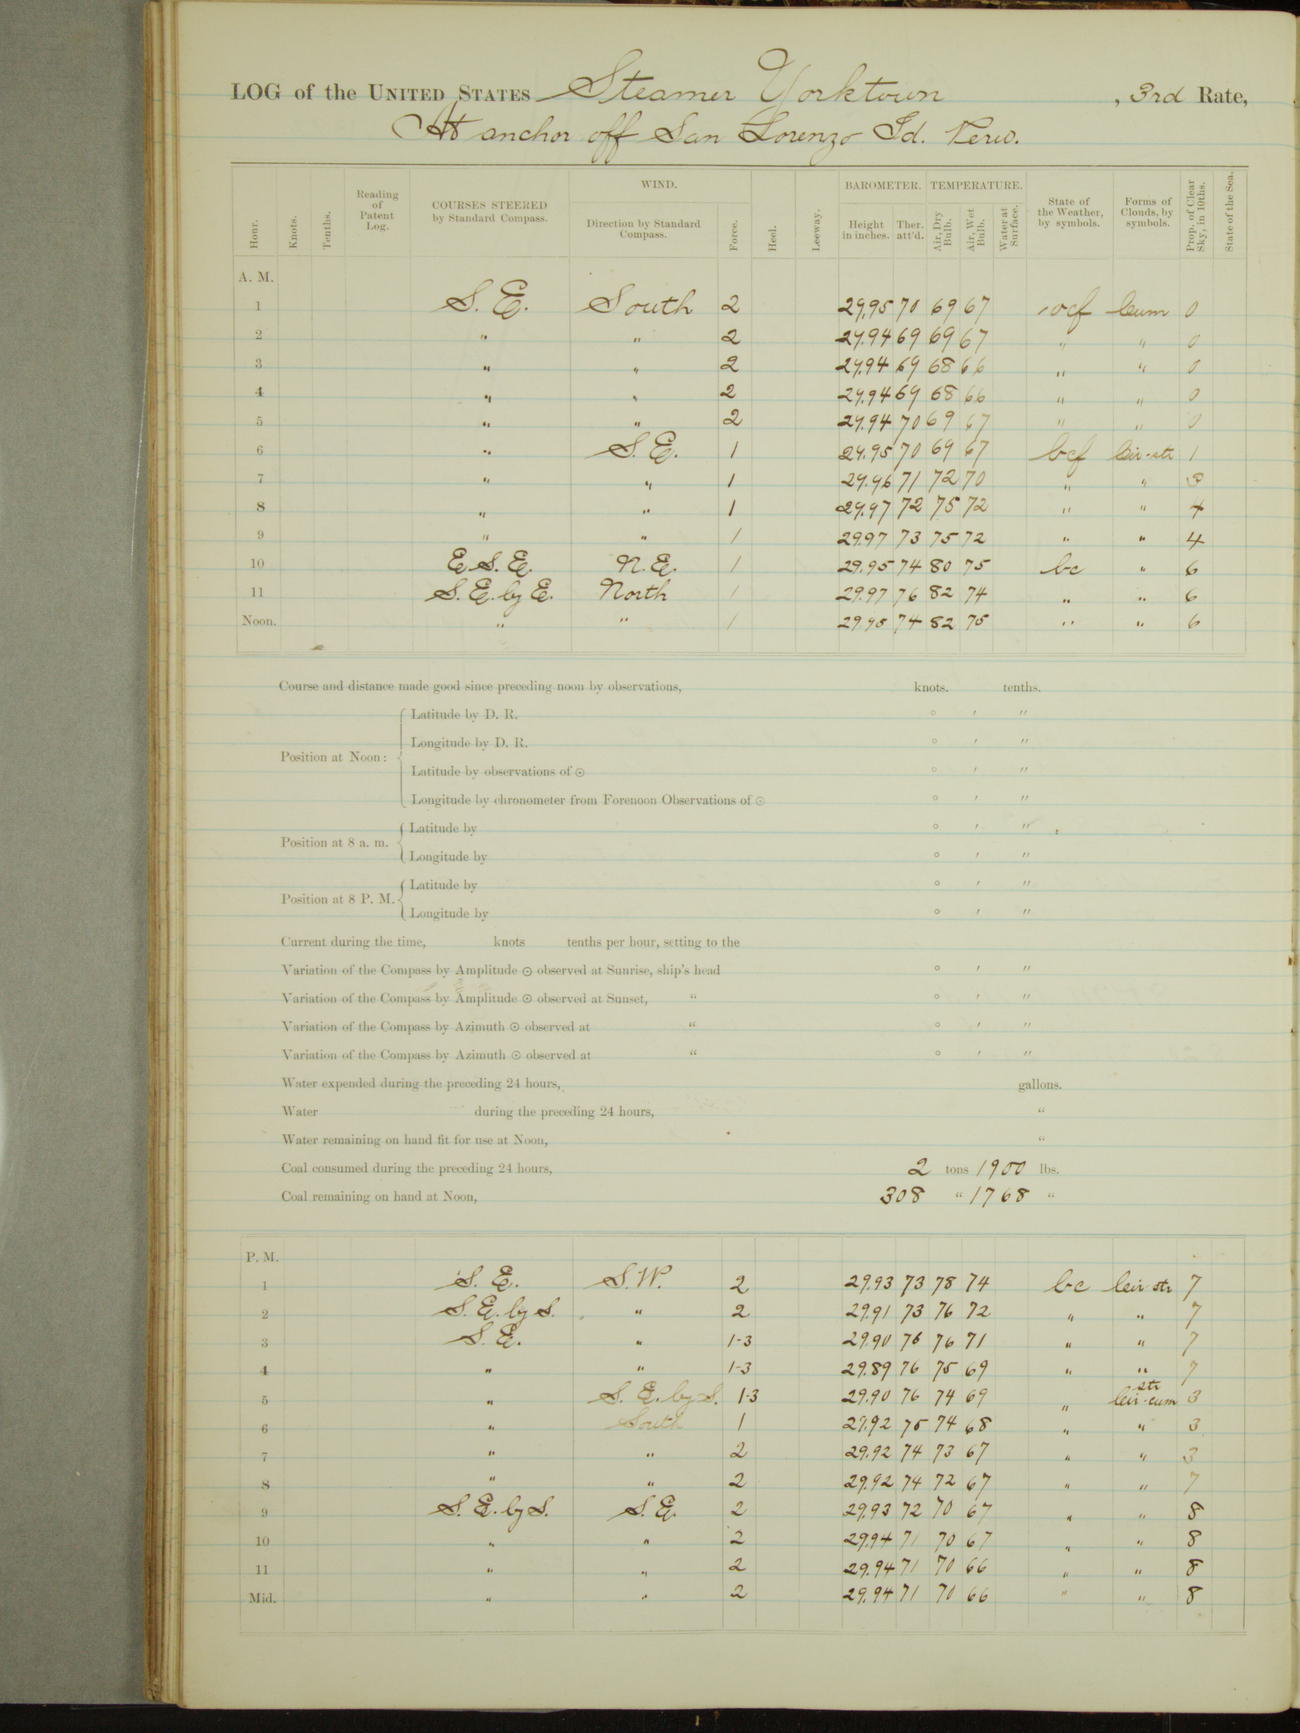 LOG of the UNITED STATES Steamer Yorktown, 3rd Rate,
At anchor off San Lorenzo Id. Peru.
Hour. Knots. Tenths. Reading of Patent Log. COURSES STEERED by Standard Compass. WIND. Direction by Standard Compass. Force. Heel. Leeway. BAROMETER. Height in inches. Ther. att'd. TEMPERATURE. Air, Dry Bulb. Air, Wet Bulb. Water at Surface. State of the Weather, by symbols. Forms of Clouds, by symbols. Prop. of Clear Sky, in 10ths. State of the Sea.
A. M.
1 S. E. South 2 29.95 70 69 67 ocf cum 0
2 " " 2 29.94 69 69 67 " " 0
3 " " 2 29.94 69 68 66 " " 0
4 " " 2 29.94 69 68 66 " " 0
5 " " 2 29.94 70 69 67 " " 0
6 " S. E. 1 29.95 70 69 67 bcf cir-str 1
7 " " 1 29.96 71 72 70 " " 3
8 " " 1 29.97 72 75 72 " " 4
9 " " 1 29.97 73 75 72 " " 4
10 E. S. E. N. E. 1 29.95 74 80 75 bc " 6
11 S. E. by E. North 1 29.97 76 82 74 " " 6
Noon. " " 1 29.95 74 82 75 " " 6
Course and distance made good since preceding noon by observations, knots. tenths.
Position at Noon: Latitude by D. R. ° ' "
Longitude by D. R. ° ' "
Latitude by observations of ☉ ° ' "
Longitude by chronometer from Forenoon Observations of ☉ ° ' "
Position at 8 a. m. Latitude by ° ' "
Longitude by ° ' "
Position at 8 P. M. Latitude by ° ' "
Longitude by ° ' "
Current during the time, knots tenths per hour, setting to the
Variation of the Compass by Amplitude ☉ observed at Sunrise, ship's head ° ' "
Variation of the Compass by Amplitude ☉ observed at Sunset, " ° ' "
Variation of the Compass by Azimuth ☉ observed at " ° ' "
Variation of the Compass by Azimuth ☉ observed at " ° ' "
Water expended during the preceding 24 hours, gallons.
Water during the preceding 24 hours, "
Water remaining on hand fit for use at Noon, "
Coal consumed during the preceding 24 hours, 2 tons 1900 lbs.
Coal remaining on hand at Noon, 308 " 1768 "
P. M.
1 S. E. S.W. 2 29.93 73 78 74 bc cir str 7
2 S. E. by S. " 2 29.91 73 76 72 " " 7
3 S. E. " 1-3 29.90 76 76 71 " " 7
4 " " 1-3 29.89 76 75 69 " " 7
5 " S. E. by S. 1-3 29.90 76 74 69 " str cir-cum 3
6 " South 1 29.92 75 74 68 " " 3
7 " " 2 29.92 74 73 67 " " 3
8 " " 2 29.92 74 72 67 " " 7
9 S. E. by S. S. E. 2 29.93 72 70 67 " " 8
10 " " 2 29.94 71 70 67 " " 8
11 " " 2 29.94 71 70 66 " " 8
Mid. " " 2 29.94 71 70 66 " " 8